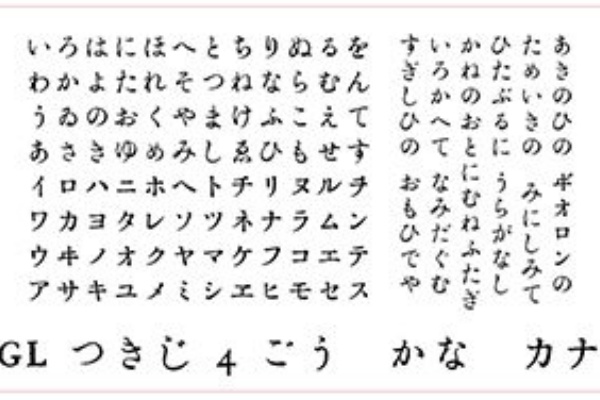 いろはにほへとちりぬるを
わかよたれそつねならむん
うゐのおくやまけふこえて
あさきゆめみしゑひもせす
イロハニホヘトチリヌルヲ
ワカヨタレソツネナラムン
ウヰノオクヤマケフコエテ
アサキユメミシヱヒモセス
あきのひの ヸオロンの
ためいきの みにしみて
ひたぶるに うらがなし
かねのおとにむねふたぎ
いろかへて なみだぐむ
すぎしひの おもひでや
GL つきじ 4 ごう かな カナ